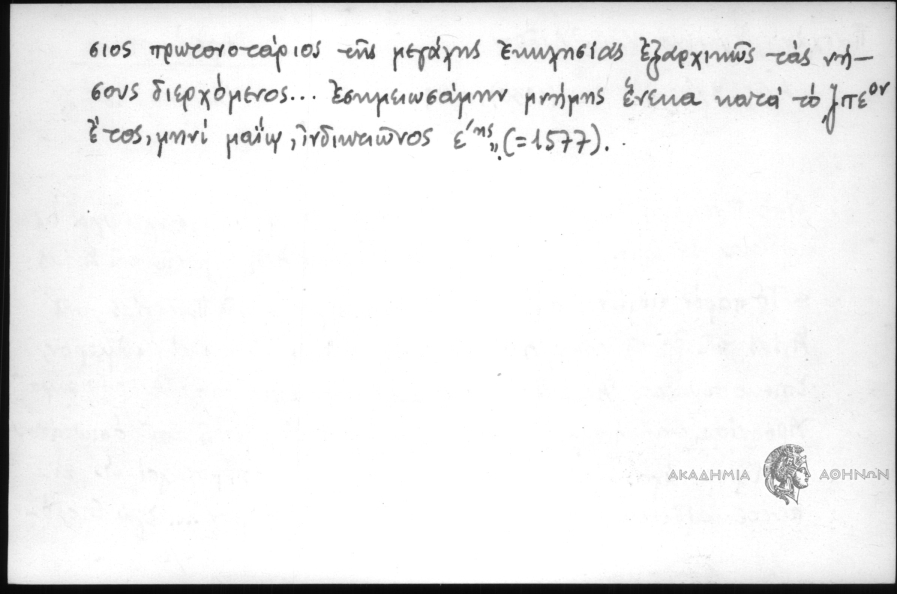 σιος πρωτονοτάριος τῆς μεγάλης ἐκκλησίας ἐξαρχικῶς τὰς νή-
σους διερχόμενος... ἐσημειωσάμην μνήμης ἕνεκα κατὰ τὸ ͵ζπεον
ἔτος, μηνὶ μαΐῳ, ἰνδικτιῶνος ε´ης„ (=1577).
ΑΚΑΔΗΜΙΑ ΑΘΗΝΩΝ